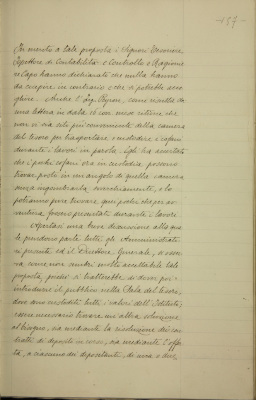 157
In merito a tale proposta i Signori Economo,
Ispettore di Contabilità e Controllo e Ragionie
re Capo hanno dichiarato che nulla hanno
da eccepire in contrario e che si potrebbe acco
gliere. Anche l'Ing. risulta da
una lettera in data 16 corr. mese ritiene che
non vi sia altro più conveniente della camera
del tesoro per trasportare e custodire i cofani
durante i lavori in parola. Egli ha accertato
che i pochi cofani ora in custodia, possono
trovar posto in un angolo di quella camera
senza ingombrarla soverchiamente, e lo
potranno pure trovare quei pochi che per av
ventura fossero presentati durante i lavori.
Apertasi una breve discussione alla qua
le prendono parte tutti gli Amministrato
ri presenti ed il Direttore Generale, si osser
va come non sembri molto accettabile tale
proposta, poiché si tratterebbe di dover poi
introdurre il pubblico nella Sala del tesoro,
dove sono custoditi tutti i valori dell'Istituto;
essere necessario trovare un'altra soluzione
al bisogno, sia mediante la risoluzione dei con
tratti di deposito in corso, sia mediante l'offer
ta, a ciascuno dei depositanti, di una o due